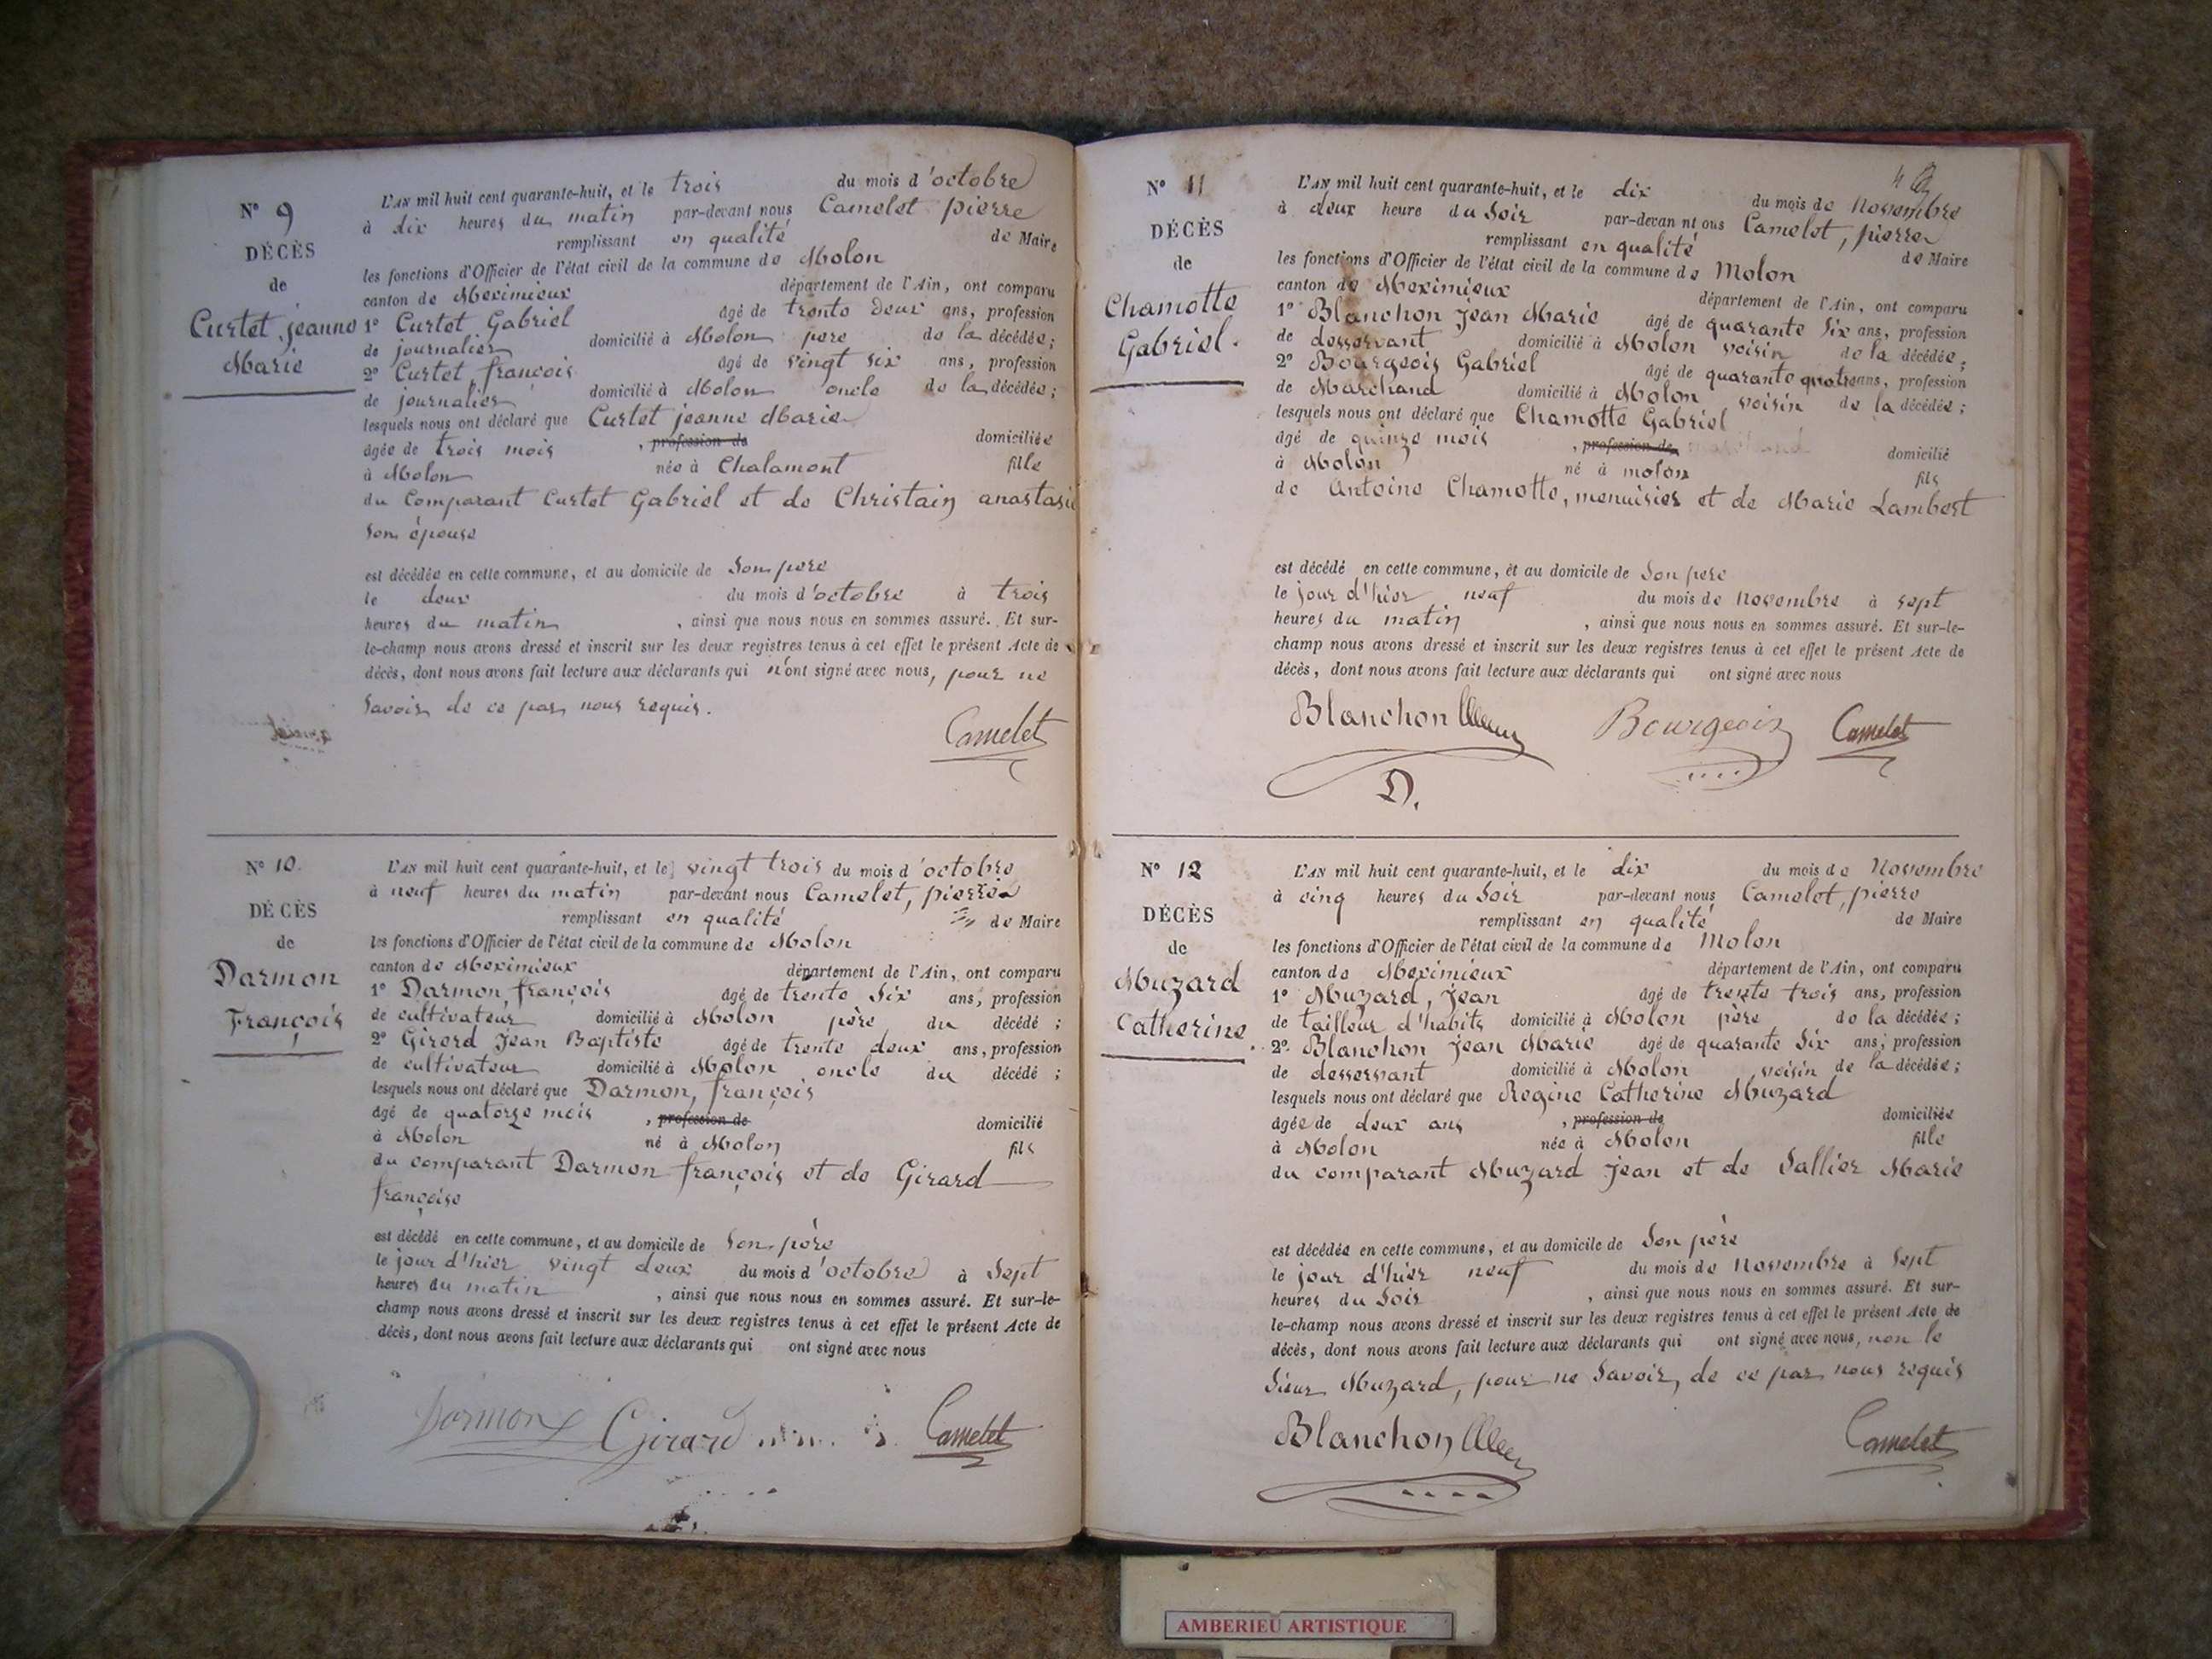 N° 9
DÉCÈS
de
Curtet jeanne
Marie
L'AN mil huit cent quarante-huit, et le trois du mois d'octobre
à dix heures du matin par-devant nous Camelet pierre
remplissant en qualité de Maire
les fonctions d'Officier de l'état civil de la commune de Molon
canton de Meximieux département de l'Ain, ont comparu
1° Curtet Gabriel âgé de trente deux ans, profession
de journalier domicilié à Molon pere de la décédée;
2° Curtet françois âgé de vingt six ans, profession
de journalier domicilié à Molon oncle de la décédée;
lesquels nous ont déclaré que Curtet jeanne Marie
âgée de trois mois , profession de domiciliée
à Molon née à Chalamont fille
du Comparant Curtet Gabriel et de Christain anastasie
Son épouse
est décédée en cette commune, et au domicile de Son pere
le deux du mois d'octobre à trois
heures du matin , ainsi que nous nous en sommes assuré. Et sur-
le-champ nous avons dressé et inscrit sur les deux registres tenus à cet effet le présent Acte de
décès, dont nous avons fait lecture aux déclarants qui n'ont signé avec nous, pour ne
Savoir de ce par nous requis.
Camelet
N° 10.
DÉCÈS
de
Darmon
François
L'AN mil huit cent quarante-huit, et le vingt trois du mois d'octobre
à neuf heures du matin par-devant nous Camelet, pierre
remplissant en qualité de Maire
les fonctions d'Officier de l'état civil de la commune de Molon
canton de Meximieux département de l'Ain, ont comparu
1° Darmon françois âgé de trente Six ans, profession
de cultivateur domicilié à Molon père du décédé ;
2° Girerd Jean Baptiste âgé de trente deux ans, profession
de cultivateur domicilié à Molon oncle du décédé ;
lesquels nous ont déclaré que Darmon, françois
âgé de quatorze mois , profession de domicilié
à Molon né à Molon fils
du comparant Darmon françois et de Girard
françoise
est décédé en cette commune, et au domicile de Son père
le jour d'hier vingt deux du mois d'octobre à Sept
heures du matin , ainsi que nous nous en sommes assuré. Et sur-le-
champ nous avons dressé et inscrit sur les deux registres tenus à cet effet le présent Acte de
décès, dont nous avons fait lecture aux déclarants qui ont signé avec nous
Darmon Girard Camelet
N° 11
DÉCÈS
de
Chamotte
Gabriel.
L'AN mil huit cent quarante-huit, et le dix du mois de Novembre
à deux heure du Soir par-devan nt ous Camelet, pierre
remplissant en qualité de Maire
les fonctions d'Officier de l'état civil de la commune de Molon
canton de Meximieux département de l'Ain, ont comparu
1° Blanchon Jean Marie âgé de quarante Six ans, profession
de desservant domicilié à Molon voisin de la décédée;
2° Bourgeois Gabriel âgé de quarante quatre ans, profession
de Marchand domicilié à Molon voisin de la décédée;
lesquels nous ont déclaré que Chamotte Gabriel
âgé de quinze mois , profession de domicilié
à Molon né à molon fils
de Antoine Chamotte, menuisier et de Marie Lambert
est décédé en cette commune, et au domicile de Son pere
le jour d'hier neuf du mois de Novembre à sept
heures du matin , ainsi que nous nous en sommes assuré. Et sur-le-
champ nous avons dressé et inscrit sur les deux registres tenus à cet effet le présent Acte de
décès, dont nous avons fait lecture aux déclarants qui ont signé avec nous
Blanchon Bourgeois Camelet
D.
N° 12
DÉCÈS
de
Muzard
Catherine.
L'AN mil huit cent quarante-huit, et le dix du mois de Novembre
à cinq heures du Soir par-devant nous Camelet, pierre
remplissant en qualité de Maire
les fonctions d'Officier de l'état civil de la commune de Molon
canton de Meximieux département de l'Ain, ont comparu
1° Muzard, Jean âgé de trente trois ans, profession
de tailleur d'habits domicilié à Molon père de la décédée;
2° Blanchon Jean Marie âgé de quarante Six ans, profession
de desservant domicilié à Molon voisin de la décédée;
lesquels nous ont déclaré que Regine Catherine Muzard
âgée de deux ans , profession de domiciliée
à Molon née à Molon fille
du comparant Muzard Jean et de Sallier Marie
est décédée en cette commune, et au domicile de Son père
le jour d'hier neuf du mois de Novembre à Sept
heures du Soir , ainsi que nous nous en sommes assuré. Et sur-
le-champ nous avons dressé et inscrit sur les deux registres tenus à cet effet le présent Acte de
décès, dont nous avons fait lecture aux déclarants qui ont signé avec nous, non le
Sieur Muzard, pour ne Savoir, de ce par nous requis
Blanchon Camelet
AMBERIEU ARTISTIQUE